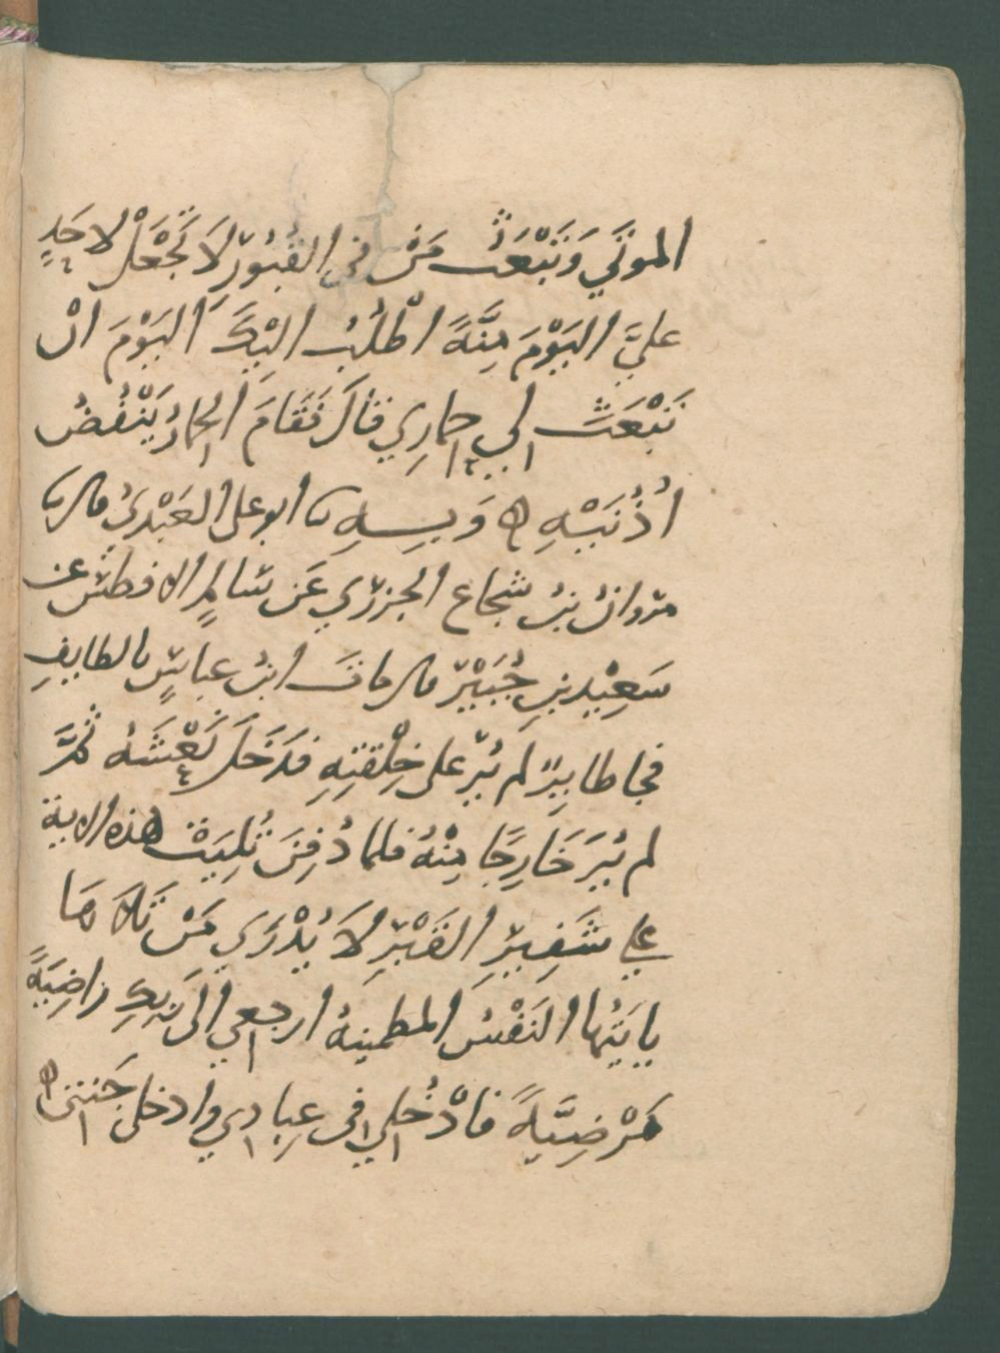 الموتَي وَتَبْعَثُ مَنْ في القُبُوْرِ لَا تَجْعَلْ لاحَدٍ
عليَّ اليَوْمَ مِنَّةً اطْلُبُ اليْكَ اليَوْمَ انْ
تَبْعَثَ لي حِمارِي قالَ فَقَامَ الحِمارُ يَنْفُضُ
اُذُنَيْهِ ه وَبِسِهِ نا ابو علي العَبْديُ قال نا
مروانُ بنُ شجاع الجزري عَن سَالمٍ الافطس عن
سَعِيْدِ بنِ جُبَيْرٍ قال ماتَ ابنُ عباسٍ بالطايِفِ
فجا طايِرٌ لم يُرَ على خِلْقتِهِ فدَخَلَ نَعْشَهُ ثمَّ
لم يُرَ خَارِجًا مِنْهُ فلما دُفِنَ تُلِيَتْ هذه الاية
علي شَفِيرِ القَبْرِ لاَ يُدْرَي مَنْ تَلاهَا
يا يَتُها النَفْسُ المطمينه ارجعي الى ربكِ راضِيَةً
مَرْضِيَّةً فادْخُلي في عِبادِي وادخلي جَنتي ه